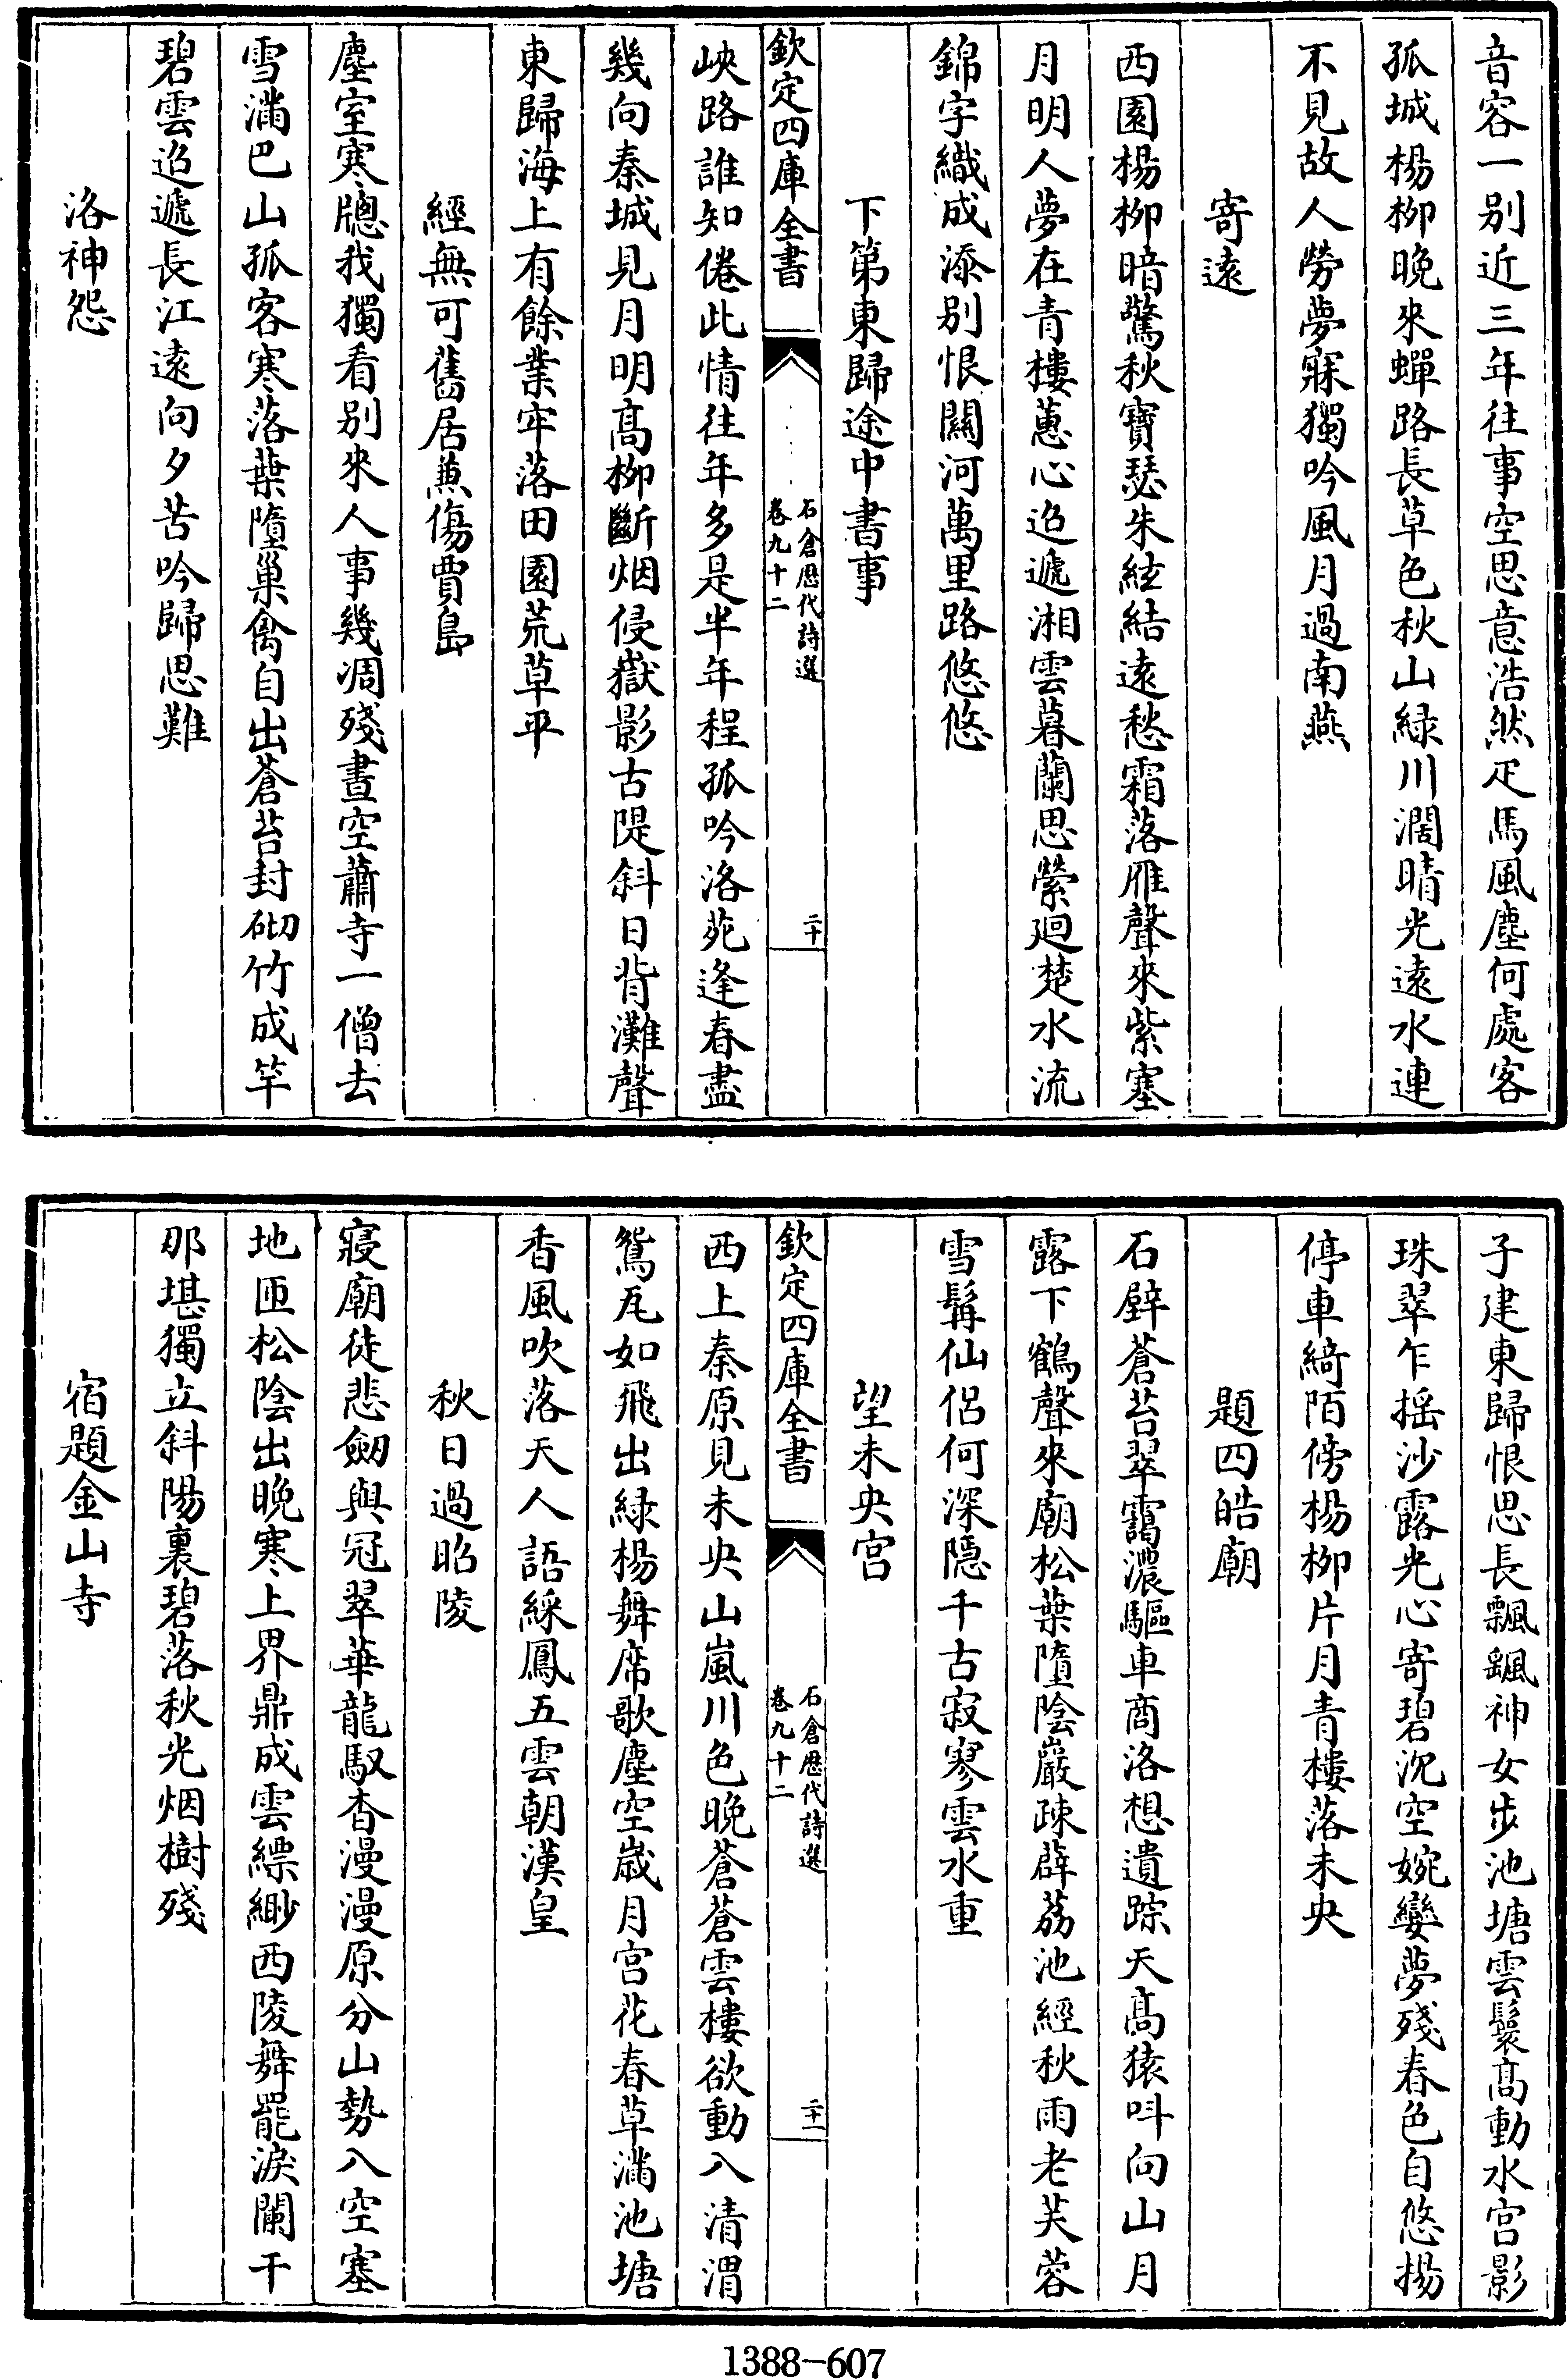 音容一别近三年往事空思意浩然疋馬風塵何處客
孤城楊柳晚來蟬路長草色秋山緑川濶晴光遠水連
不見故人勞夢寐獨吟風月過南燕
寄遠
西園楊柳暗驚秋寶瑟朱絃結遠愁霜落雁聲來紫塞
月明人夢在青樓蕙心迢遞湘雲暮蘭思縈廻楚水流
錦字織成添别恨關河萬里路悠悠
下第東歸途中書事
欽定四庫全書
石倉歴代詩選
卷九十二
二十
峽路誰知倦此情往年多是半年程孤吟洛苑逢春盡
幾向秦城見月明髙柳斷烟侵嶽影古隄斜日背灘聲
東歸海上有餘業牢落田園荒草平
經無可舊居兼傷賈島
塵室寒牕我獨看别來人事幾凋殘晝空蕭寺一僧去
雪滿巴山孤客寒落葉墮巢禽自出蒼苔封砌竹成竿
碧雲迢遞長江遠向夕苦吟歸思難
洛神怨
子建東歸恨思長飄颻神女步池塘雲鬟髙動水宫影
珠翠乍摇沙露光心寄碧沉空婉孌夢殘春色自悠揚
停車綺陌傍楊柳片月青樓落未央
題四皓廟
石壁蒼苔翠靄濃驅車商洛想遺踪天髙猿呌向山月
露下鶴聲來廟松葉墮陰巖疎薜荔池經秋雨老芙蓉
雪髯仙侣何深隠千古寂寥雲水重
望未央宫
欽定四庫全書
石倉歴代詩選
卷九十二
二十一
西上秦原見未央山嵐川色晚蒼蒼雲樓欲動入清渭
鴛瓦如飛出緑楊舞席歌塵空歲月宫花春草滿池塘
香風吹落天人語綵鳳五雲朝漢皇
秋日過昭陵
寢廟徒悲劒與冠翠華龍馭杳漫漫原分山勢入空塞
地匝松陰出晚寒上界鼎成雲縹緲西陵舞罷淚闌干
那堪獨立斜陽裏碧落秋光烟樹殘
宿題金山寺
1388-607